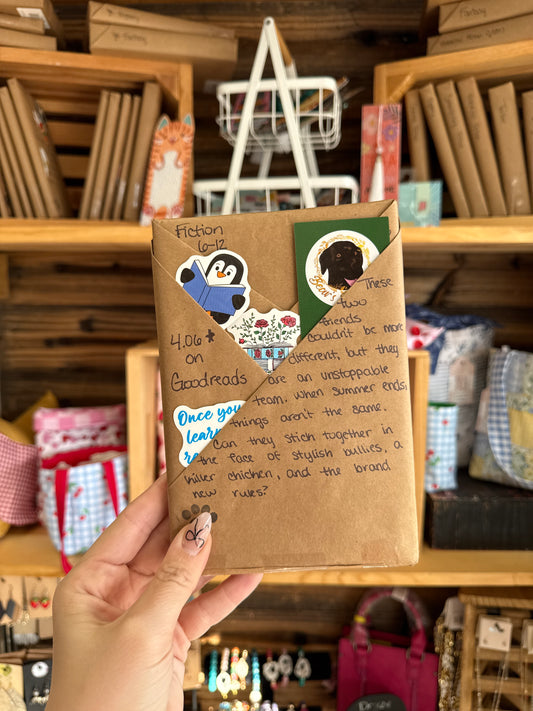 Fiction
6-12
4.06 ★
on
Goodreads
These
two
friends
couldn't be more
different, but they
are an unstoppable
team. When summer ends,
things aren't the same.
Can they stick together in
the face of stylish bullies, a
killer chicken, and the brand
new rules?
Once you
learn
Bear's